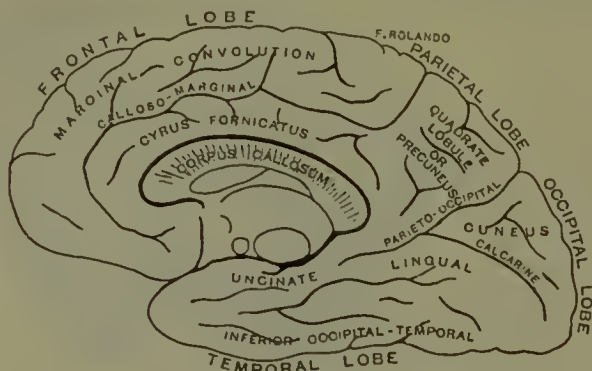 FRONTAL LOBE
F. ROLANDO
PARIETAL LOBE
MARGINAL CONVOLUTION
CALLOSO-MARGINAL
CYRUS FORNICATUS
CORPUS CALLOSUM
QUADRATE
LOBULE
OR
PRECUNEUS
PARIETO-OCCIPITAL
OCCIPITAL LOBE
CUNEUS
CALCARINE
LINGUAL
UNCINATE
INFERIOR OCCIPITAL-TEMPORAL
TEMPORAL LOBE